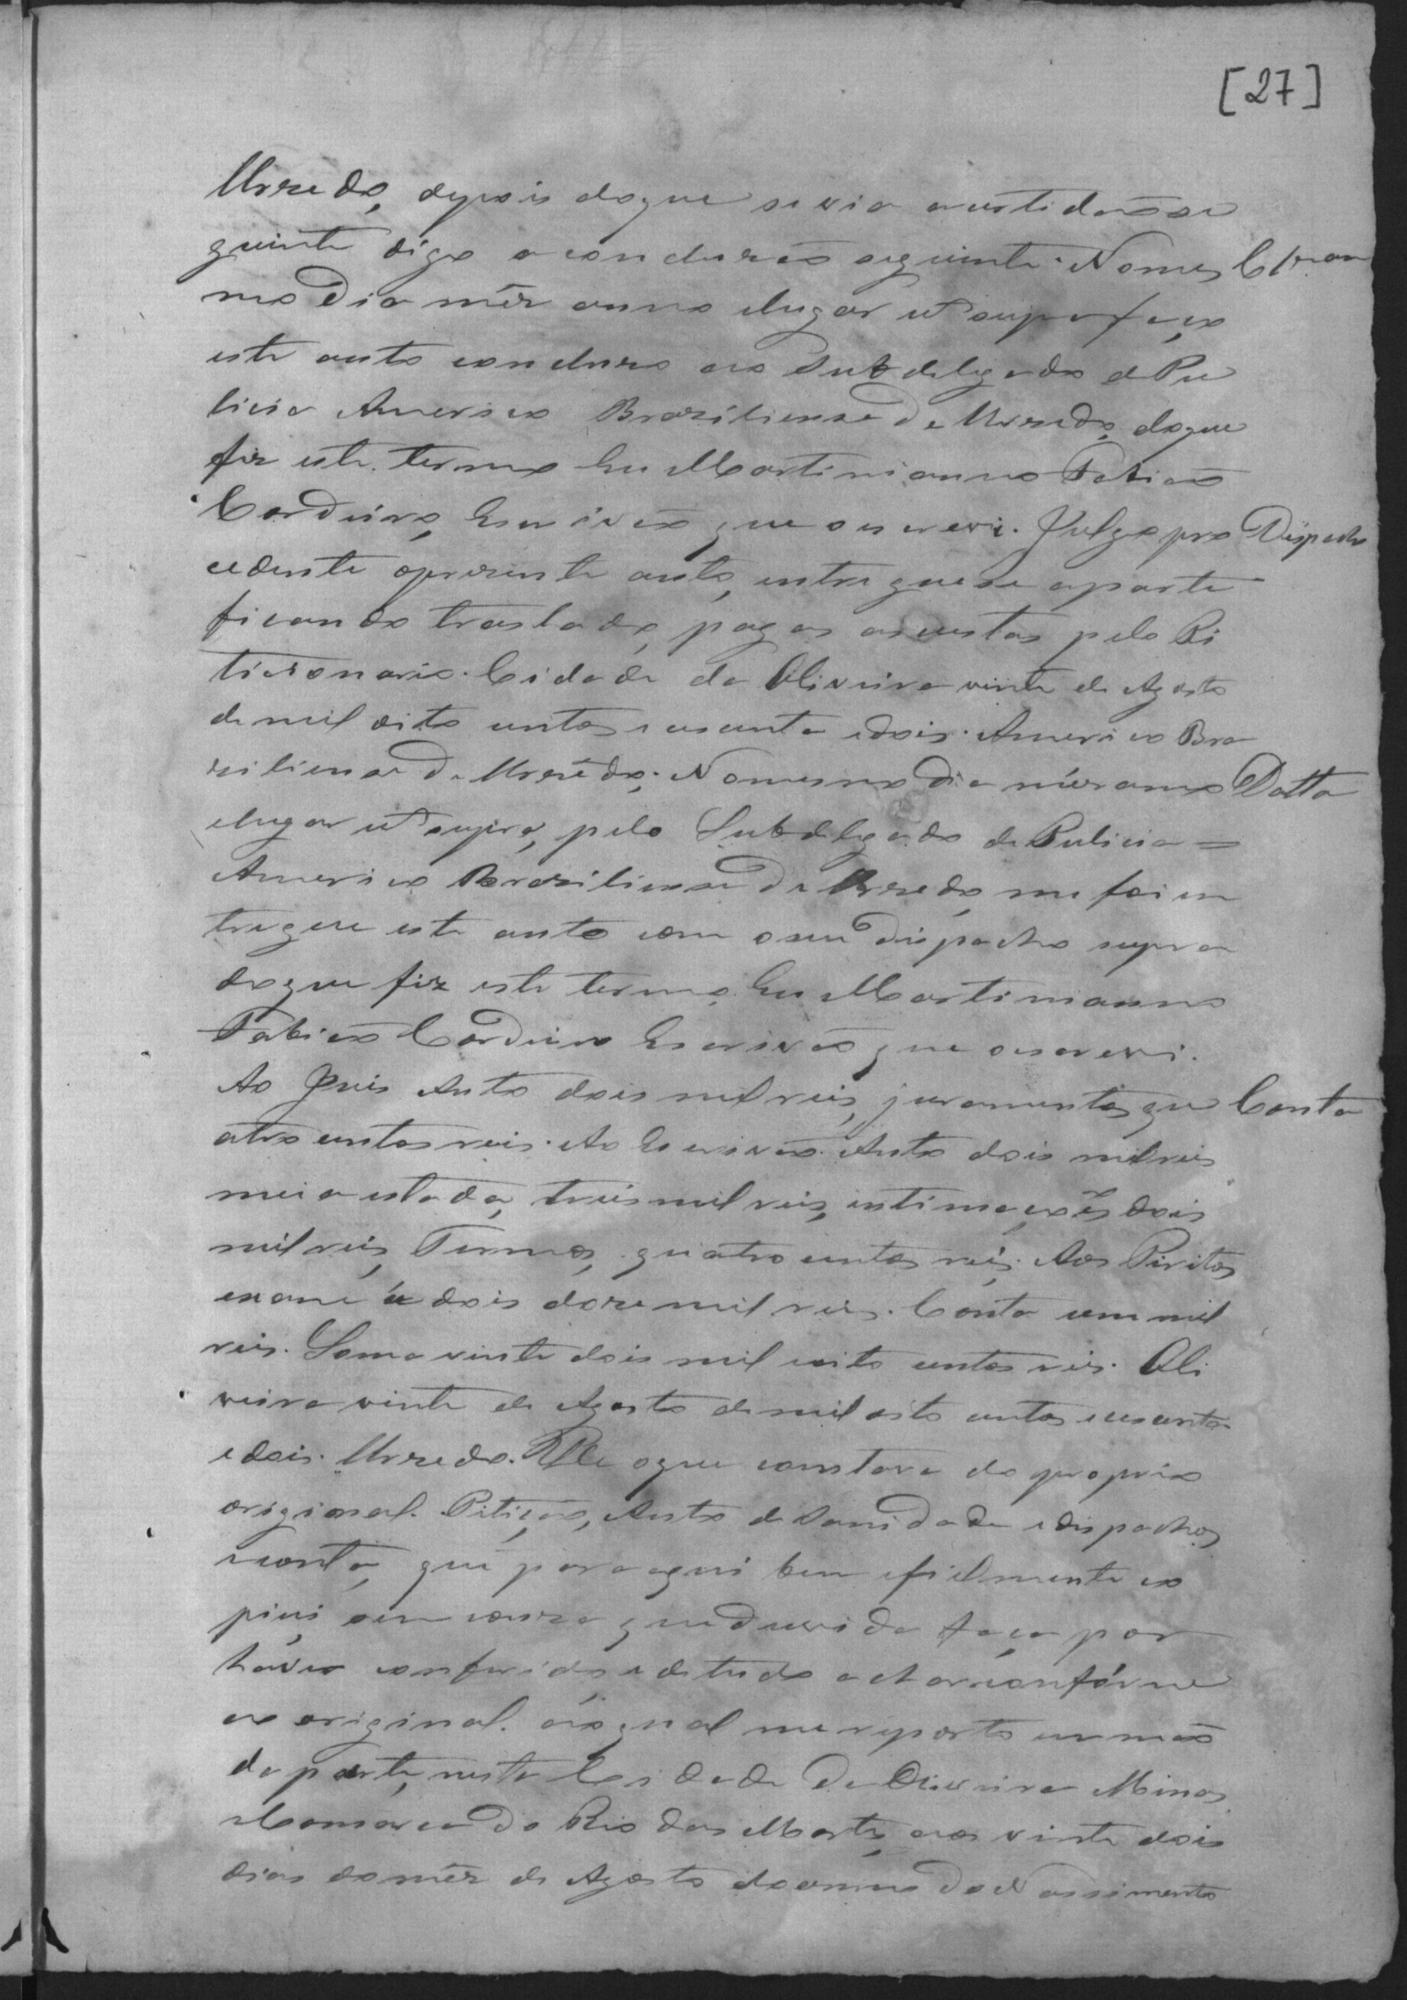 [27]
Urzedo, depois do que se via a certidão se
guinte digo a concluzão seguinte. No mes Clzam
mo dia mêz anno elugar ut supra faço
este auto concluzo ao Subdelegado de Pu
licia Americo Braziliense de Urzedo, do que
fiz este termo Eu Martinianno Fabião
Cordeiro, Escrivão que o escrevi. Julgo pro Dispacho
cedente oprezente auto, entreguese a parte
ficando traslado, pagas as custas pelo Pi
ticionario. Cidade de Oliveira vinte de Agosto
de mil oito centos e cecenta edois. Americo Bra
ziliense de Urzêdo. No mesmo dia mêz anno Datta
elugar ut supra, pelo Subdelegado de Pulicia =
Americo Braziliense de Urzedo, me foi en
tregue este auto com o seu dispacho supra
do que fiz este termo. Eu Martinianno
Fabião Cordeiro Escrivão que o escrevi.
Ao Juis Auto dois mil reis, juramentos qu Conta
atro centos reis. Ao Escrivão. Auto dois mil reis
meia estada, treis mil reis, intimações dois
mil reis, Termos, quatro centos reis. Aos Piritos
exame á dois doze mil reis. Conta cem mil
reis. Soma vinte dois mil eoito centos reis. Oli
veira vinte de Agosto de mil oito centos e cecenta
e dois. Urzedo. He o que constava do proprio
original. Pitição, Auto de Sanidade e dispachos
e conta, que para aqui bem efielmente co
piei sem couza que duvida faça por
haver conferido, e de tudo achar confórme
ao original. ao qual me reporto em mão
da parte, nesta Cidade de Oliveira Minas
e Comarca do Rio das Mortes, aos vinte dois
dias do mêz de Agosto do anno do Nassimento